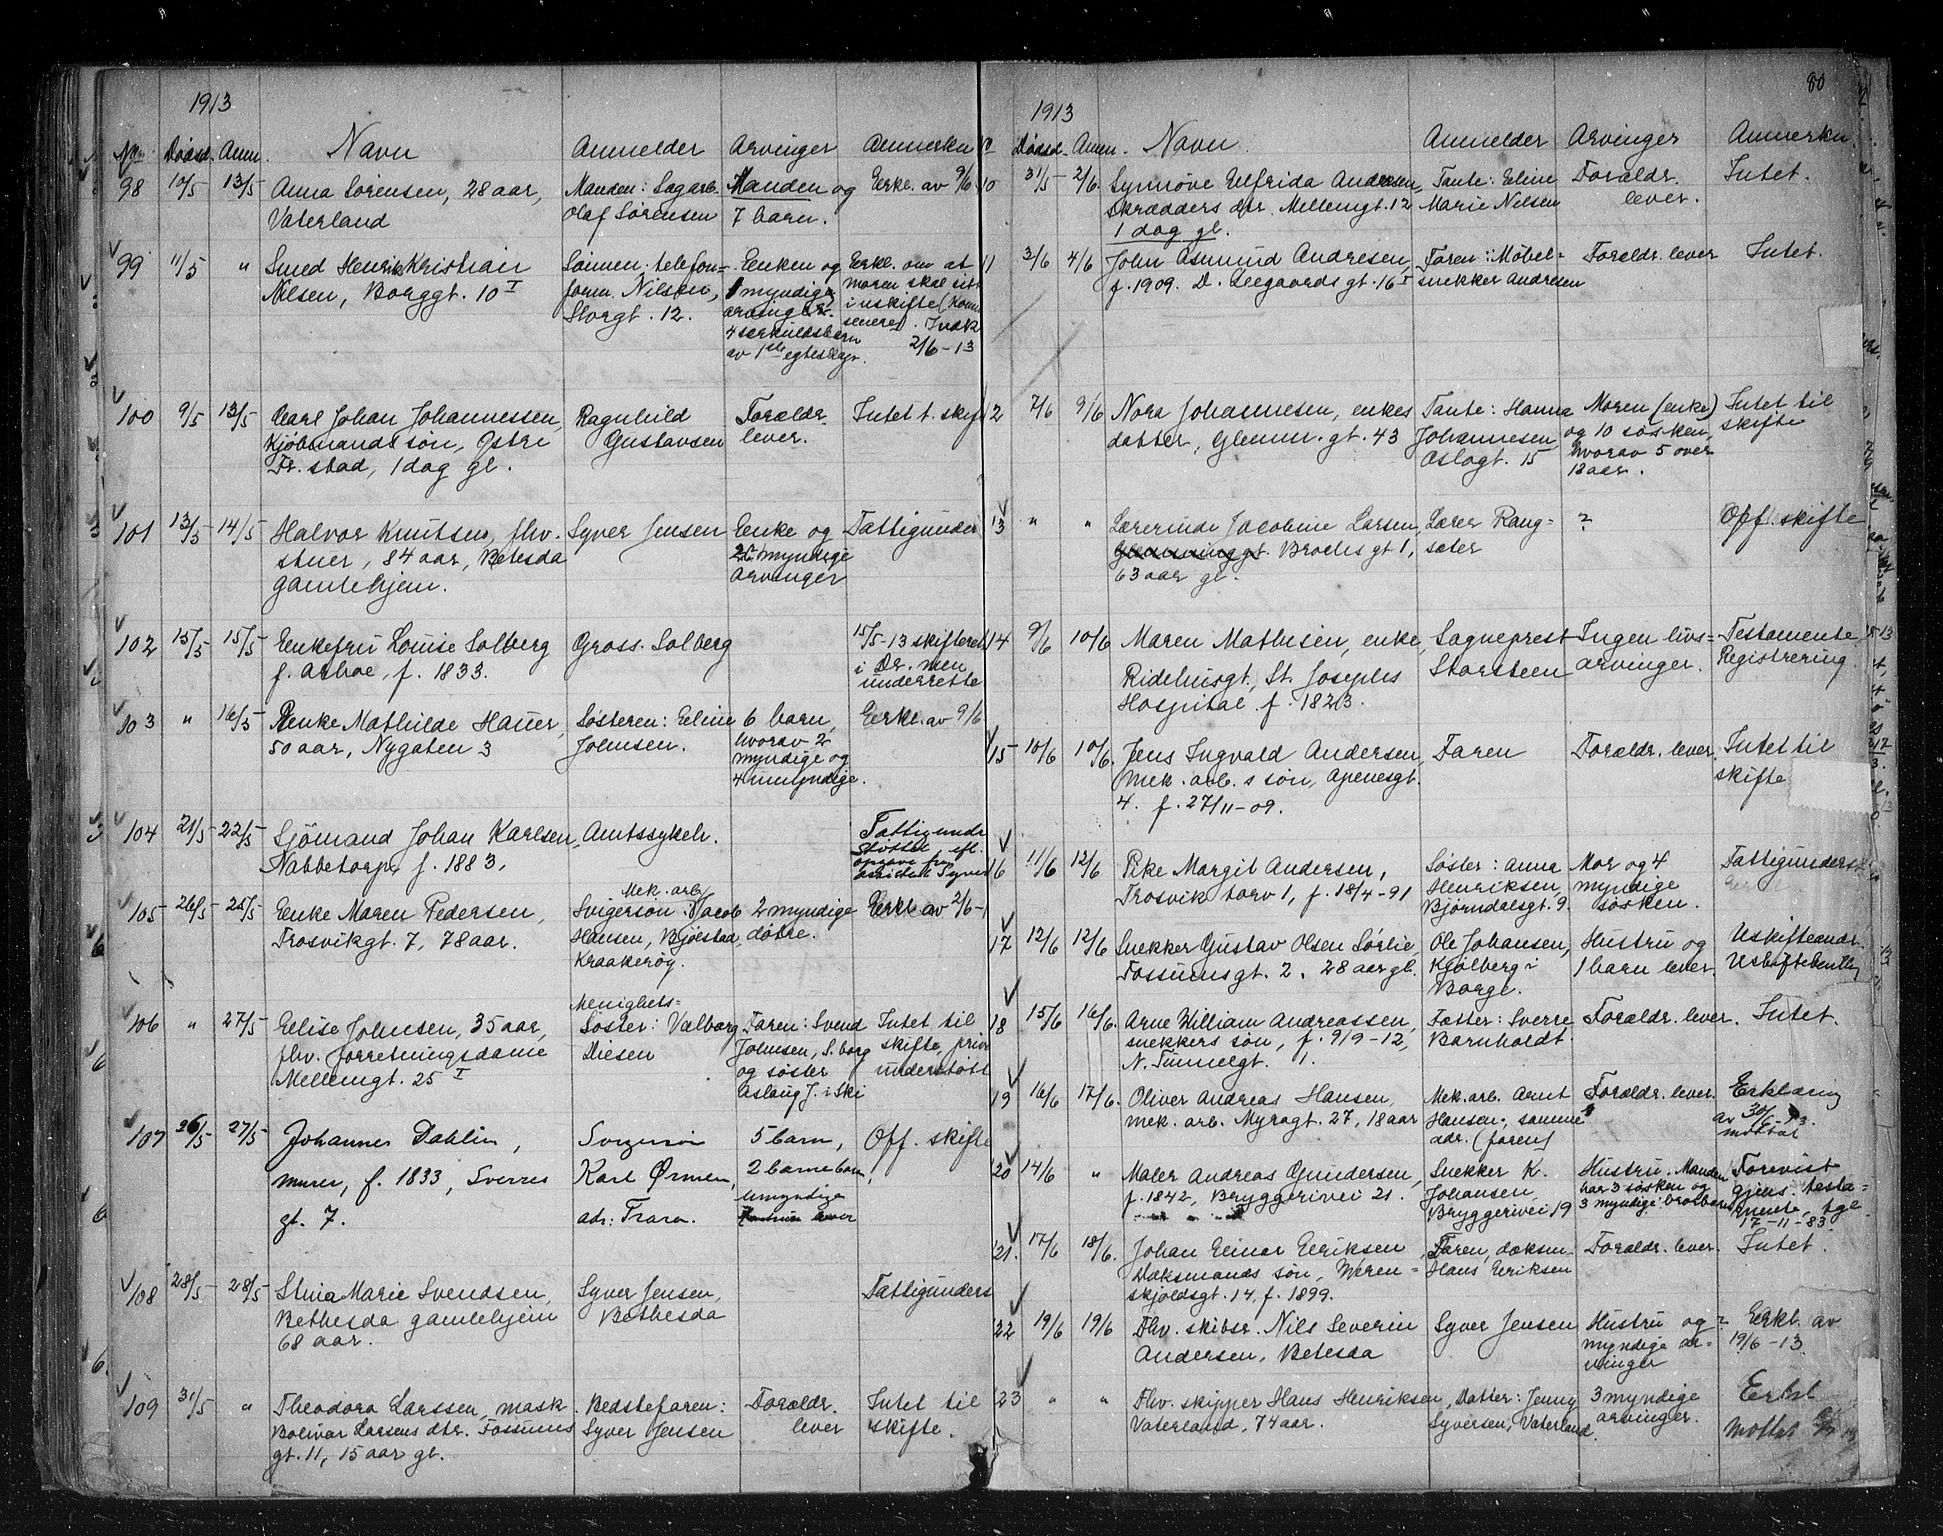 1913
No. Dödsd. Anm. Navn Anmelder Arvinger Anmerkn
98 10/5 13/5 Anna Sörensen, 28 aar, Manden: Sagarb. Manden og Erkl. av 9/6
Vaterland Olaf Sörensen 7 barn.
99 11/5 " Smed Henrik Kristian Sönnen: telefon= Enken og Erkl. om at
Nilsen, Borggt. 10 I form. Nilsen, myndige moren skal sitte
Storgt. 12. arvinger. i uskifte (kom
4 særkuldsbarn senere). Indk
av 1ste egteskap. 2/6-13
100 9/5 13/5 Carl Johan Johannessen, Ragnhild Forældr. Intet t. skift
Kjöbmands sön, Östre Gustavsen lever.
Fr.stad, 1 dag gl.
101 13/5 14/5 Halvor Knutsen, fhv. Syver Jensen Enke og Fattigunder
stuer, 84 aar, Betesda myndige
gamlehjem. arvinger
102 15/5 15/5 Enkefru Louise Solberg Gross. Solberg 15/5-13 skifteret
f. Arboe, f. 1833. i Dr.men
underrettet
103 " 16/5 Enke Mathilde Hauer, Søsteren: Eline 6 barn, Erkl. av 9/6
50 aar, Nygaten 3 Johnsen. hvorav 2
myndige og
4 umyndige.
104 21/5 22/5 Sjömand Johan Karlsen, Amtssykeh. Fattigunder
Nabbetorp, f. 1883. støttet efl.
opgave fra
assistent Syver
105 26/5 26/5 Enke Maren Pedersen, Mek. arb.
Svigersön: Jacob 2 myndige Erkl av 2/6-1
Trosvikgt. 7, 78 aar. Hansen, Bjölstad, döbre.
Kraakeröy.
106 " 27/5 Elise Johnsen, 35 aar, Menighets=
Søster: Valborg Faren: Svend Intet til
fhv. forretningsdame Diesen Johnsen, S.borg skifte, priv
Mellemgt. 25 I og søster understøtt
Aslaug J. i Ski
107 26/5 27/5 Johannes Dahlin, Svigersön 5 barn, Off. skifte
murer, f. 1833, Sverres Karl Ørmen, 2 barnebarn,
gt. 7. adr: Trara. umyndige
108 28/5 28/5 Stina Marie Svendsen, Syver Jensen, Fattigunders
Bethesda gamlehjem Bethesda
68 aar.
109 31/5 " Theodora Larssen, mask. Bedstefaren: Forældr. Intet til
Bolivar Larsens dtr. Fossums Syver Jensen lever skifte.
gt. 11, 15 aar gl.
80
1913
Dödsd. Anm. Navn. Anmelder Arvinger Anmerkn.
10 31/5 2/6. Synnöve Elfrida Andresen, Tante: Eline Forældr. Intet.
Skrædders dtr. Mellemgt. 12 Marie Nilsen lever.
1 dag gl.
11 3/6 4/6 John Asmund Andresen, Faren: Möbel= Forældr. lever Intet.
f. 1909. D. Leegaards gt. 16 I snekker Andresen
12 7/6 9/6 Nora Johannesen, enkes Tante: Hanna Moren (enke) Intet til
datter, Glemm. gt. 43 Johannesen, og 10 søsken, skifte
Oslogt. 15 hvorav 5 over
18 aar.
13 " " Lærerinde Jacobine Larsen, Lærer Rang= ? Off. skifte
Brochs gt 1, sæter
63 aar gl.
14 9/6 10/6 Maren Mathisen, enke, Sogneprest Ingen livs= Testamente
Ridehusgt., St. Josephs Storsteen arvinger. Registrering.
Hospital. f. 1823.
15 10/6 10/6. Jens Ingvald Andersen, Faren Forældr. lever. Intet til
Mek. arb. s sön, Apenesgt. skifte
4. f. 27/11-09.
16 11/6 12/6 Pike Margit Andersen, Søster: Anna Mor og 4 Fattigunders
Trosvik torv 1, f. 18/4-91 Henriksen, myndige
Björndalsgt. 9. søsken.
17 12/6 12/6 Snekker Gustav Olsen Sörlie, Ole Johansen, Hustru og Uskifteandr.
Fossumsgt. 2. 28 aar gl. Kjölberg i 1 barn lever. Uskiftebevillg
Borge.
18 15/6 16/6. Arne William Andreassen, Fætter: Sverre Forældr. lever. Intet.
snekkers sön, f. 9/9-12, Barnholdt.
N. Tunnelgt. 1.
19 16/6 17/6. Oliver Andreas Hansen, Mek. arb. Arnt Forældr. lever. Erklæring
mek. arb. Myragt. 27, 18 aar Hansen, samme av 30/6-13.
adr. (faren) mottat
20 14/6 " Maler Andreas Gundersen, Snekker K. Hustru. Manden Forevist
f. 1842, Bryggerivei 21. Johansen, har 3 søsken og gjens. testa=
Bryggerivei 19 3 myndige brorbarn mente, tgl.
17-11-83.
21. 17/6 18/6. Johan Einar Eriksen, Faren, doksm. Forældr. lever. Intet.
Doksmands sön, Weren= Hans Eriksen
skjoldsgt. 14, f. 1899.
22 19/6 19/6 Fhv. skibsr. Nils Severin Syver Jensen Hustru og ? Erkl. av
Andersen, Betesda myndige ar= 19/6-13.
vinger
23 " " Fhv. skipper Hans Henriksen, Datter: Jenny 3 myndige Erkl
Vaterland, 74 aar. Syversen, Vaterland. arvinger. mottat